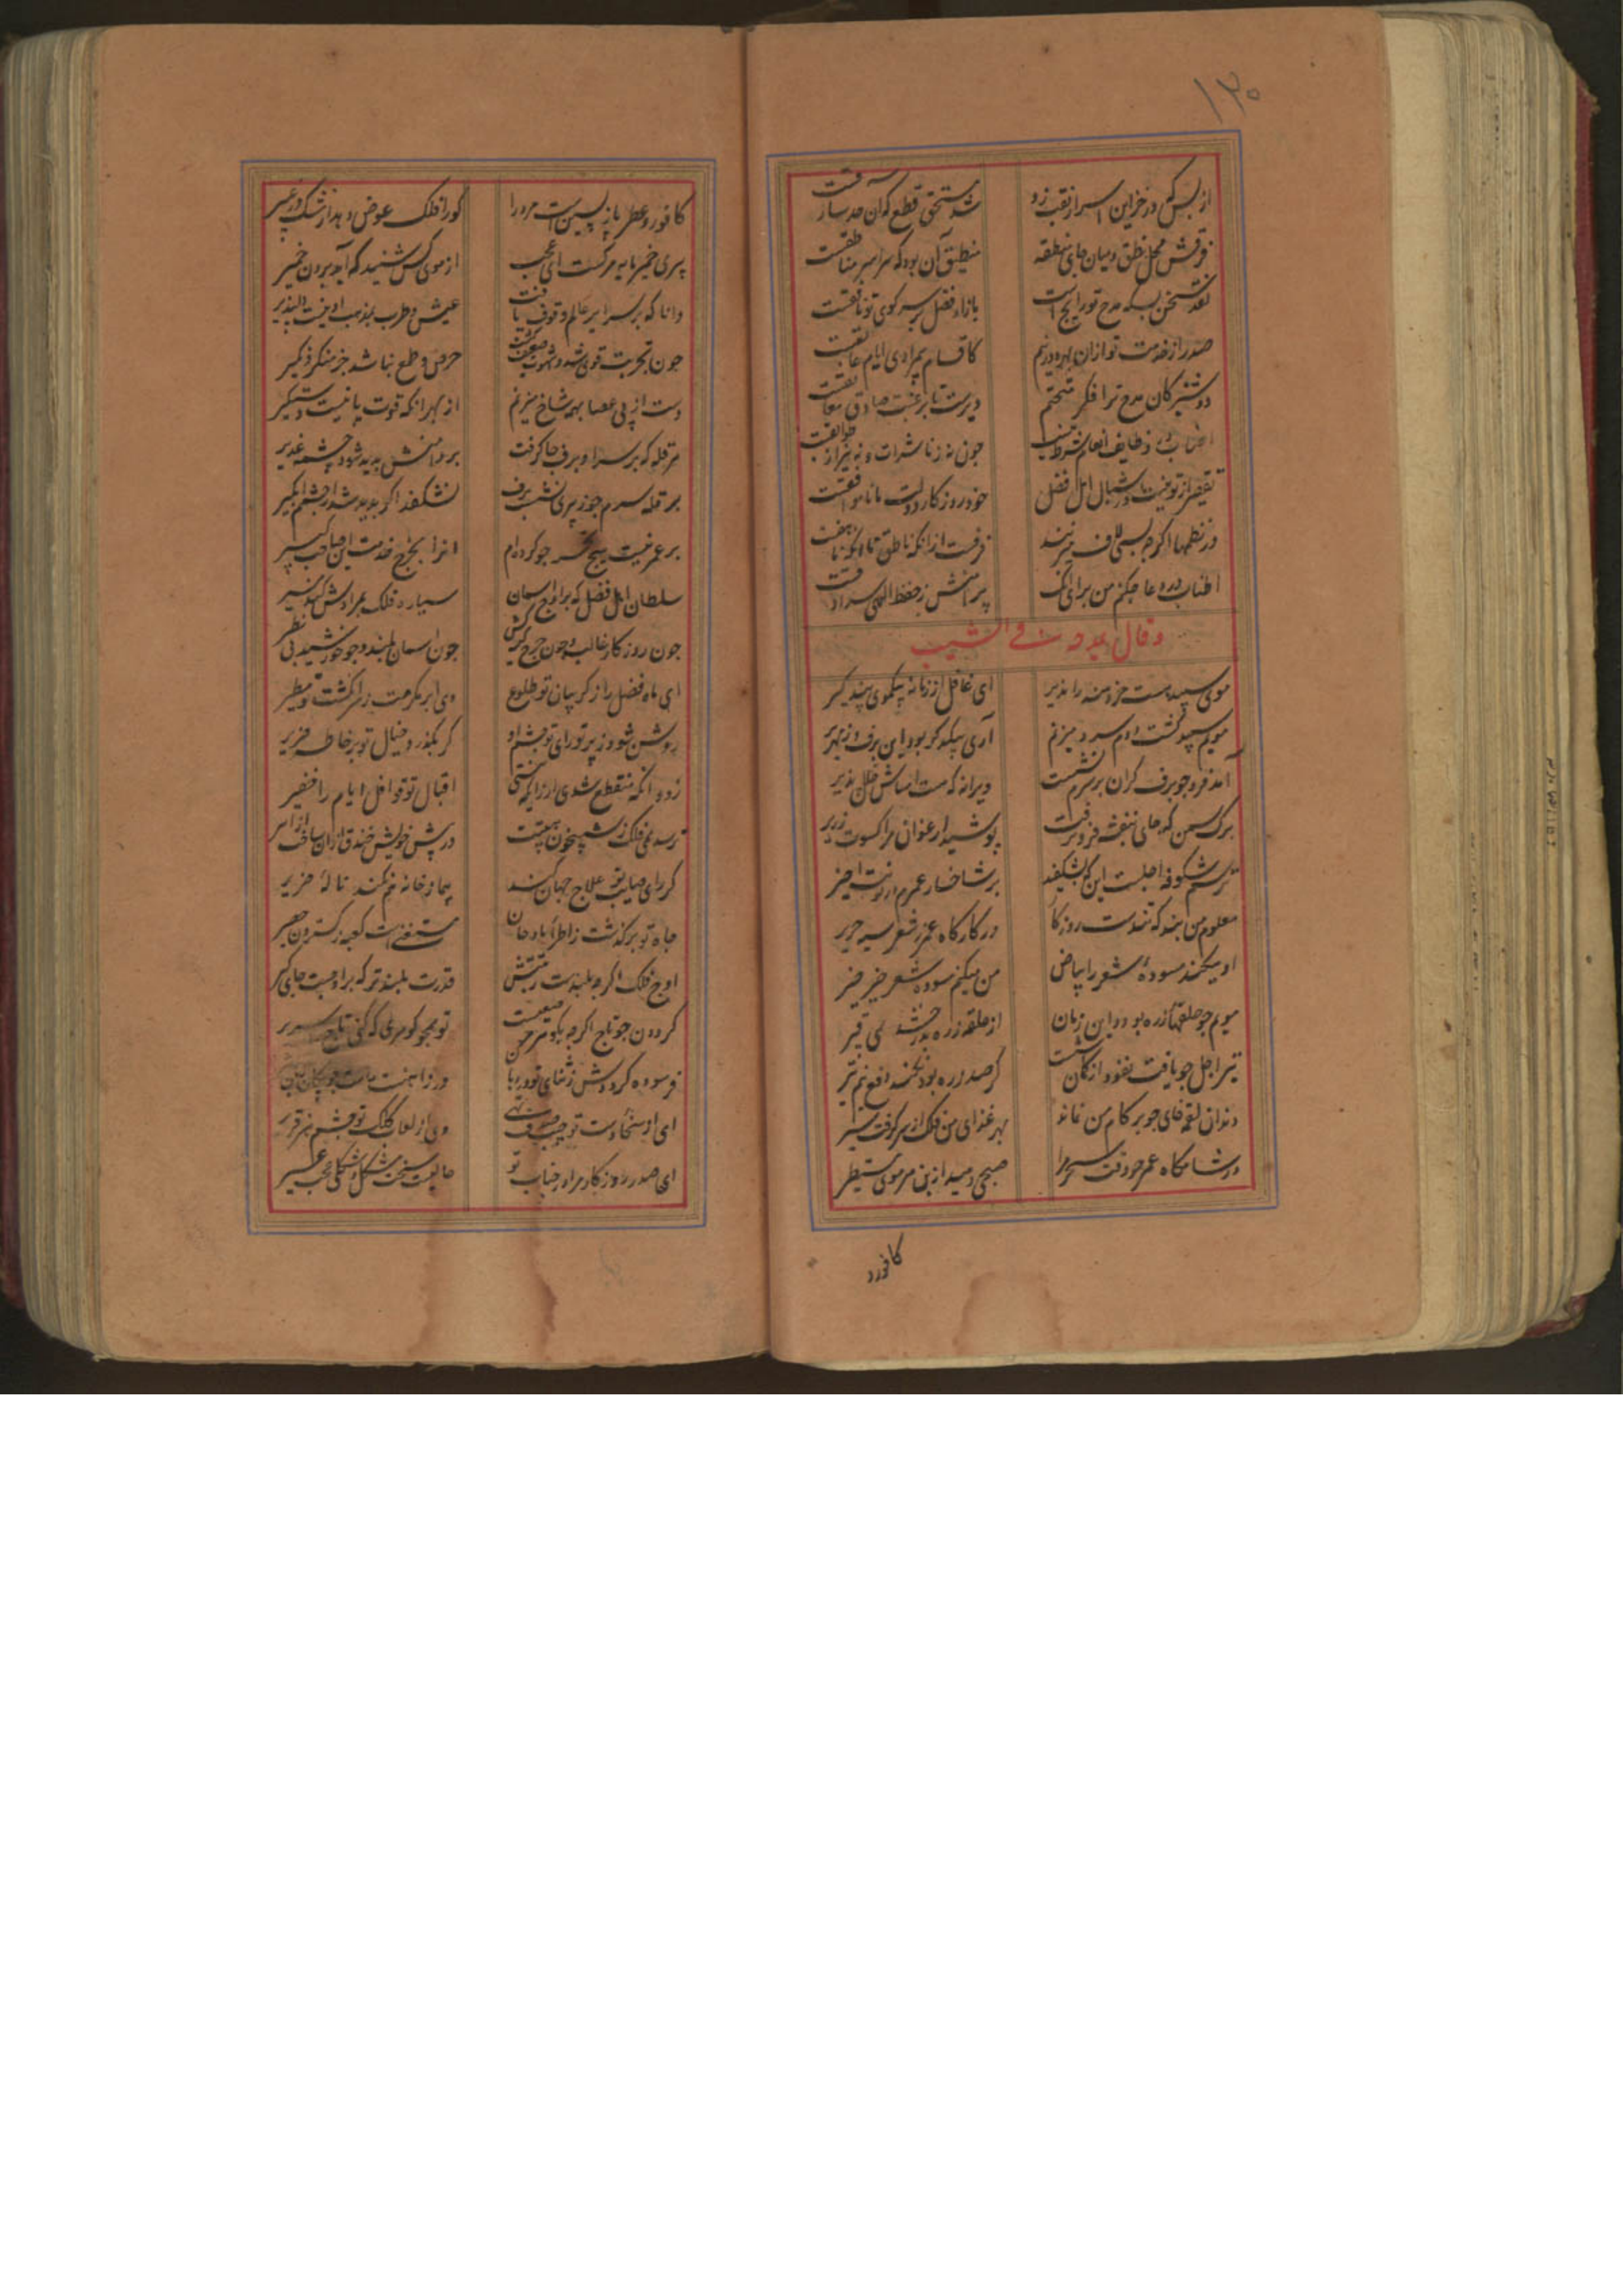 ۱۳۰
از بس که در خزاین اسرار نقب زد شد مستحق قطع که آن حد سارقست
فرقش محل نطق و میان جای منطقه منطیق آن بود که سراسر مناطقست
نقد سخن بسکه مدح تو رایج است بازار فضل بر سر کوی تو نافقست
صدرا ز خدمت تو ازان بهره ورنیم کاقسام بی مرادی ایام عایقست
دوشیزکان مدح ترا فکر متحنم دیرست تا برغبت صادق معانقست
چون نه ز ناشزات و نه نیز از طوالقست
تقصیر از تو نیست باشبال اهل فضل خود روزکار دولت مانا موافقست
در نظمها اکرچه بسی لاف میزنند فرقست از آنکه ناطق تا آنکه ناهقست
اطناب در دعا چکنم من برای آنک پیرامنش ز حفظ الهی سرادقست
وقال یمدحه فی الشیب
موی سپید هست خردمند را نذیر ای غافل از زمانه بیکموی پند کیر
مویم سپید کشت و دم سرد میزنم آری بیکدکر بود این برف و زمهریر
آمد فرو چو برف کران بر سرم نشست ویرانه که هست اساسش خلل پذیر
برک سمن که جای بنفشه فرو کرفت پوشید ارغوان مرا کسوت زریر
ترسم شکوفه اجلست این که بشکفید بر شاخسار عمرم از نوبت اخیر
معلوم من نشد که تنیدست روزکار در کارکاه عمر ز شعر سیه حریر
او میکند مسوده شعر را بیاض من میکنم مسوده شعر خیر خیر
مویم چو حلقهای زره بود و این زمان از حلقه زره بدرخشد همی قتیر
تیر اجل چو یافت نفوذ از کمان پشت کر صد زره بود نکند دفع نیم تیر
دندان لقمه خای چو بر کام من نماند بهر غذای من فلک از سر کرفت شیر
در شامکاه عمر چو رفت سحر مرا صبحی دمید از بن هر موی مستطیر
کافور
کافور و عطر بازپسین است مرد را کورا فلک عوض دهد از مشک و ز عبیر
پیری خمیر مایه مرکست ای عجب از موی کس شنید که آید برون خمیر
دانا که بر سرایر عالم وقوف یافت عیش و طرب بمذهب او نیست دلپذیر
چون تجربت قوی شد و شهوت ضعیف کشت حرص و طمع نباشد جز منکر و نکیر
دست از پی عصا بهمه شاخ میزنم از بهر آنکه قوت پا نیست دستکیر
هر قله که بر سر او برف جا کرفت بر دامنش پدید شود چشمه غدیر
بر قله سرم چو ز پیری نشست برف نشکفد اکر پدید شد از چشم آبکیر
بر عمر نیست هیچ تحسر چو کرده ام آنرا بخرج خدمت این صاحب کبیر
سلطان اهل فضل که بر اوج آسمان سیاره فلک بمرادش کند مسیر
چون روزکار غالب و چون چرخ کینه کش چون آسمان بلند و چو خورشید بی نظیر
ای ماه فضل را ز کریبان تو طلوع وی ابر مکرمت ز سر انکشت تو مطیر
روشن شود ز پرتو رای تو چشم او کر بکذرد خیال تو بر خاطر ضریر
زود آنکه منقطع شدی ار زانکه نیستی اقبال تو قوافل ایام را خفیر
ترسد همی فلک ز شبیخون هیبتت در پیش خویش خندق ازان ساخت از اثیر
کر رای صایب تو علاج جهان کند بیمار خانه نفکند ناله هزیر
جاه تو برکذشت ز اطراء مادحان مستغنی است کعبه ز کستردن حصیر
اوج فلک اکرچه بلندست رتبتش قدرت بلندتر که بر اوجست جای کیر
کردون چو تاج اکرچه بکوهر مرصعست تو همچو کوهری که کنی تاج را سریر
فرسوده کرد دوش ز ثنای تو دیرپا
ای از سخا و دست تو جیب صدف تهی وی از لعاب کلک تو چشم هنر قریر
ای صدر روزکار مرا در جناب تو حالیست سخت مشکل و شکلی عجب عسیر